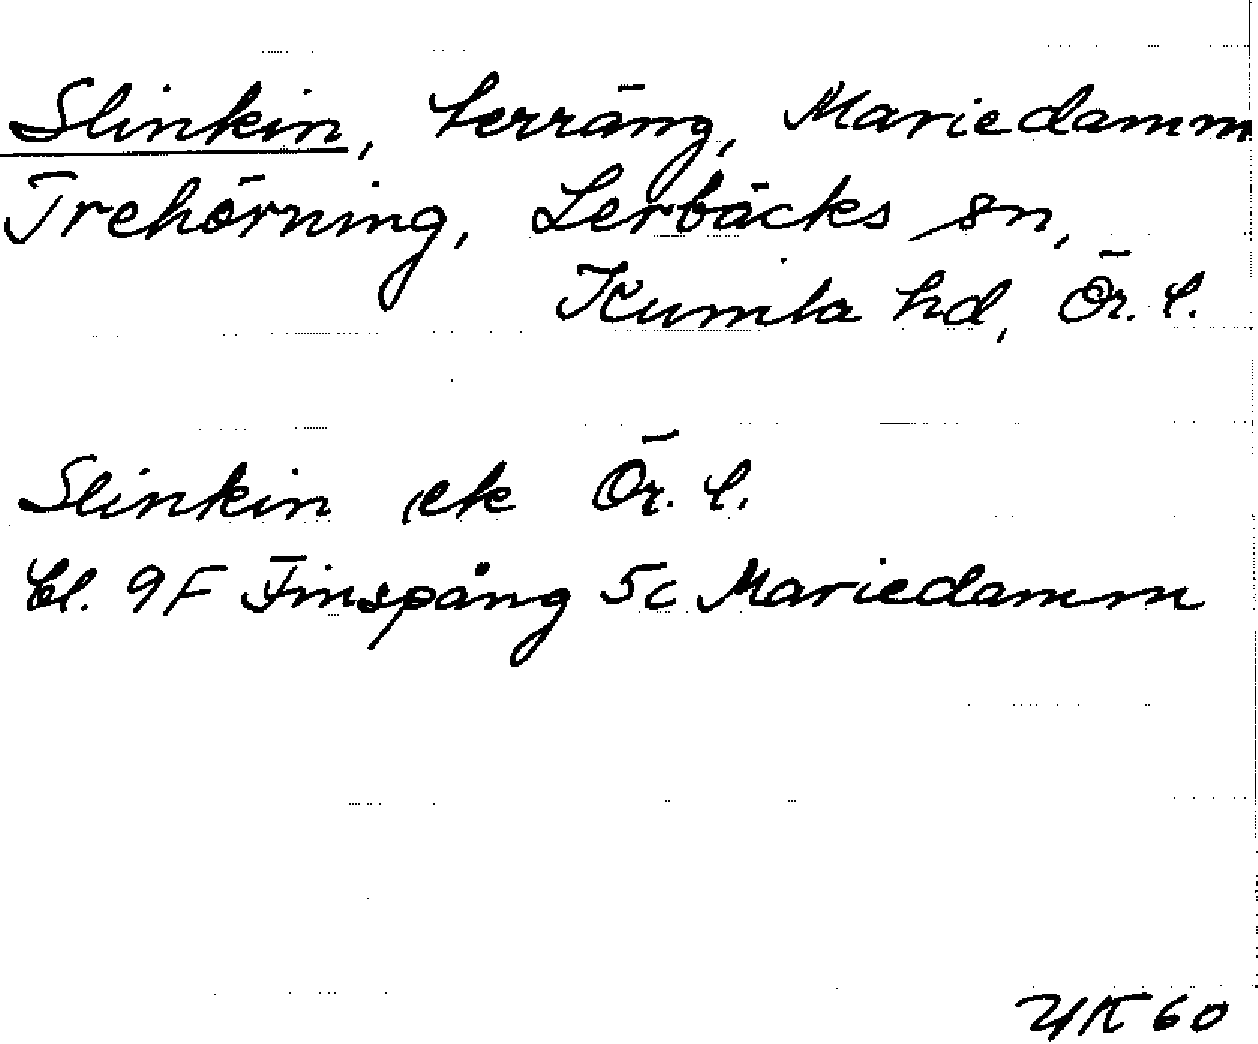 Slinkin, terräng, Mariedamm
Trehörning, Lerbäcks sn,
Kumla hd, Ör. l.
Slinkin ek Ör. l.
bl. 9F Finspång 5c Mariedamm
60